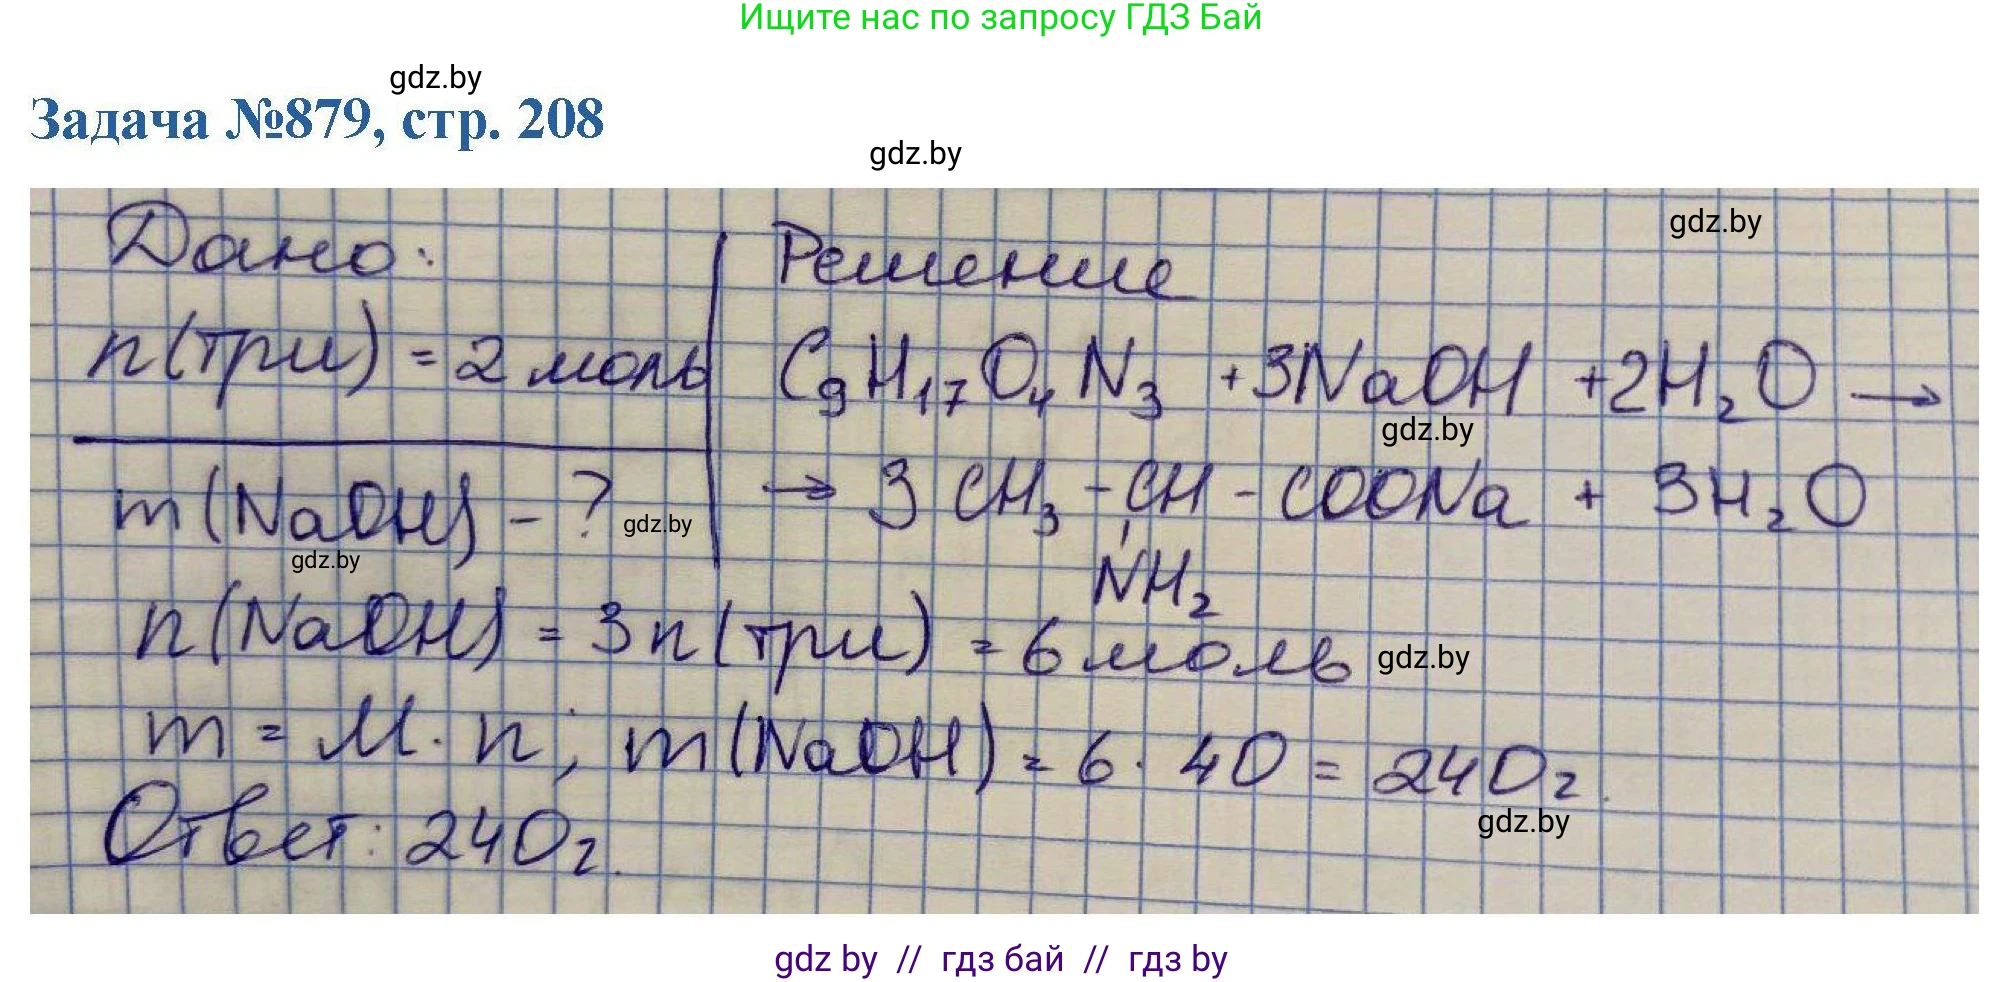 Ищите нас по запросу ГДЗ Бай
gdz.by
Задача №879, стр. 208
gdz.by
Дано:
Решение
gdz.by
n(три) = 2 моль
C₉H₁₇O₄N₃ + 3NaOH + 2H₂O →
gdz.by
m(NaOH) - ?
gdz.by
→ 3 CH₃ - CH - COONa + 3H₂O
gdz.by
NH₂
n(NaOH) = 3n(три) = 6 моль
gdz.by
m = M · n; m(NaOH) = 6 · 40 = 240г.
gdz.by
Ответ: 240г.
gdz by // гдз бай // гдз by